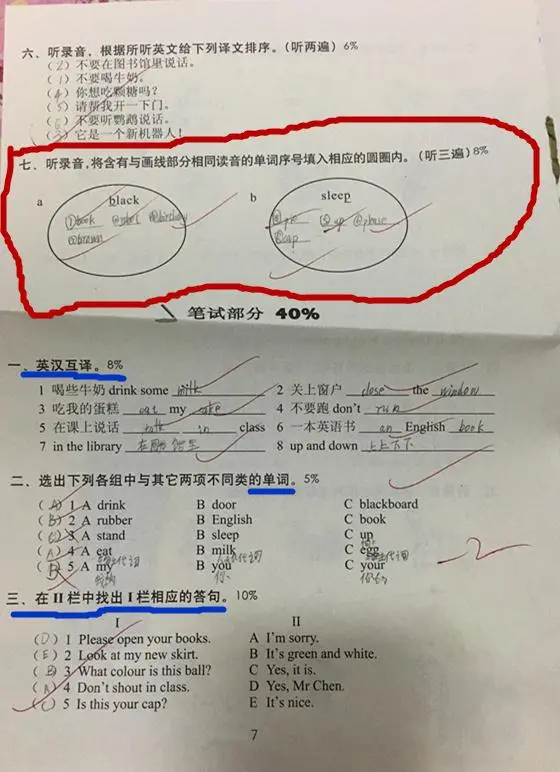 六、听录音，根据所听英文给下列译文排序。（听两遍）6%
（2）不要在图书馆里说话。
（1）不要喝牛奶。
（4）你想吃颗糖吗？
（5）请帮我开一下门。
（6）不要听鹦鹉说话。
（3）它是一个新机器人！
七、听录音，将含有与画线部分相同读音的单词序号填入相应的圆圈内。（听三遍）8%
a black b sleep
①book
up
cap
笔试部分 40%
一、英汉互译。8%
1 喝些牛奶 drink some milk 2 关上窗户 close the window
3 吃我的蛋糕 eat my cake 4 不要跑 don't run
5 在课上说话 talk in class 6 一本英语书 an English book
7 in the library 在图书馆里 8 up and down 上上下下
二、选出下列各组中与其它两项不同类的单词。5%
（A）1 A drink B door C blackboard
（B）2 A rubber B English C book
（C）3 A stand B sleep C up
（A）4 A eat B milk C egg
（ ）5 A my B you C your
你 你的
-2
三、在 II 栏中找出 I 栏相应的答句。10%
I II
（D）1 Please open your books. A I'm sorry.
（E）2 Look at my new skirt. B It's green and white.
（B）3 What colour is this ball? C Yes, it is.
（A）4 Don't shout in class. D Yes, Mr Chen.
（C）5 Is this your cap? E It's nice.
7